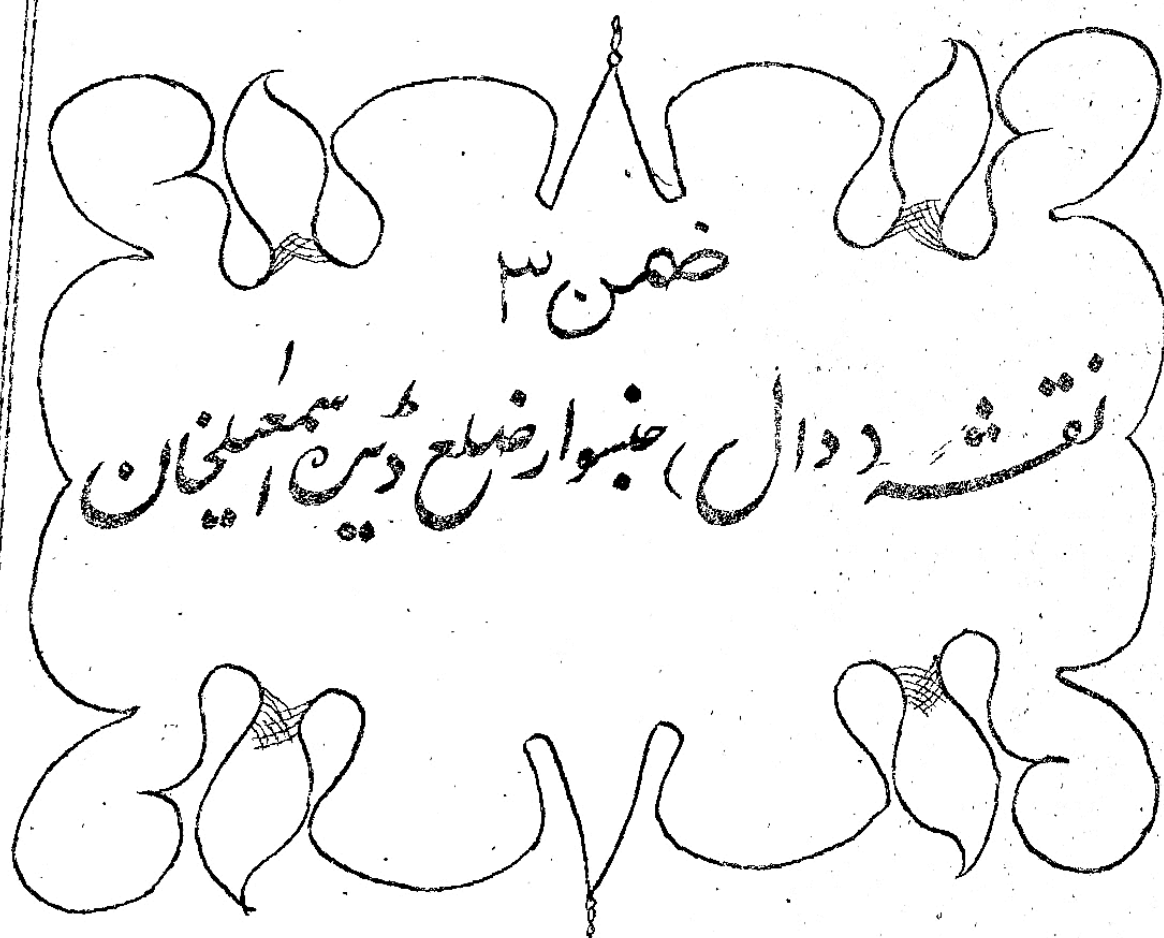 ضمن ۳
نقشہ (دال) جنسوار ضلع ڈیرہ اسمٰعیلخان